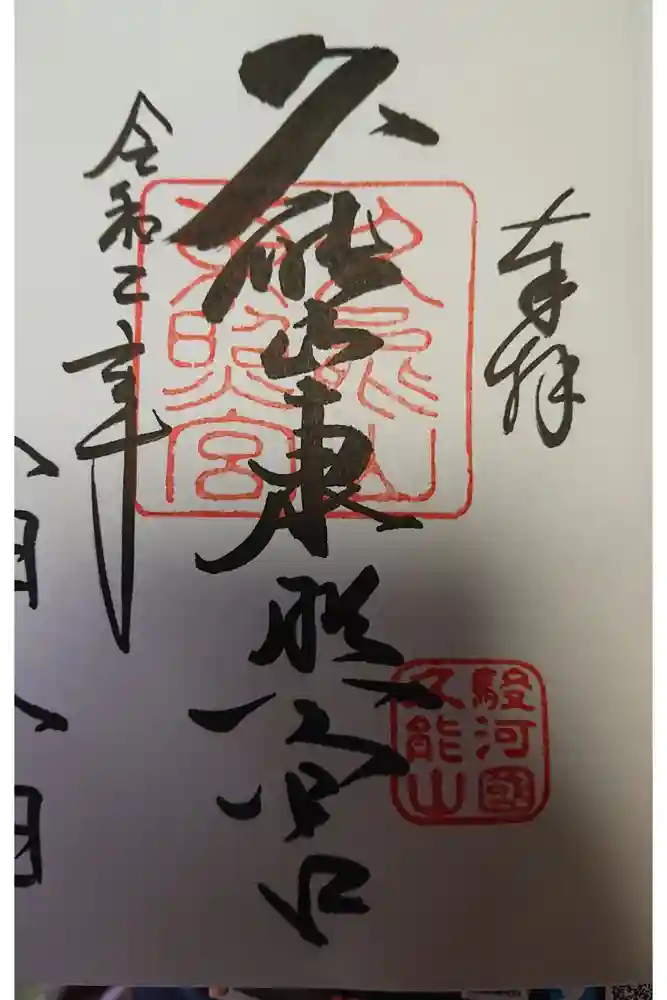 奉拝
久能山東照宮
久能山
東照宮
駿河國
久能山
令和二年
八月八日